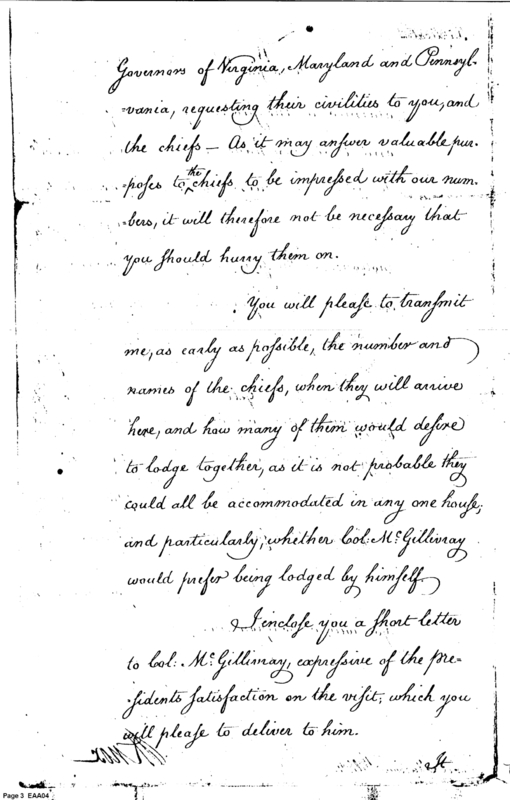 Governors of Virginia, Maryland and Pennsyl-
-vania, requesting their civilities to you, and
the chiefs — As it may answer valuable pur-
-poses to the chiefs to be impressed with our num-
-bers, it will therefore not be necessary that
you should hurry them on.
You will please to transmit
me, as early as possible, the number and
names of the chiefs, when they will arrive
here, and how many of them would desire
to lodge together, as it is not probable they
could all be accommodated in any one house;
and particularly, whether Col: Mc.Gillivray
would prefer being lodged by himself.
I inclose you a short letter
to Col: Mc.Gillivray, expressive of the pre-
sidents satisfaction on the visit; which you
will please to deliver to him.
It
Page 3 EAA04